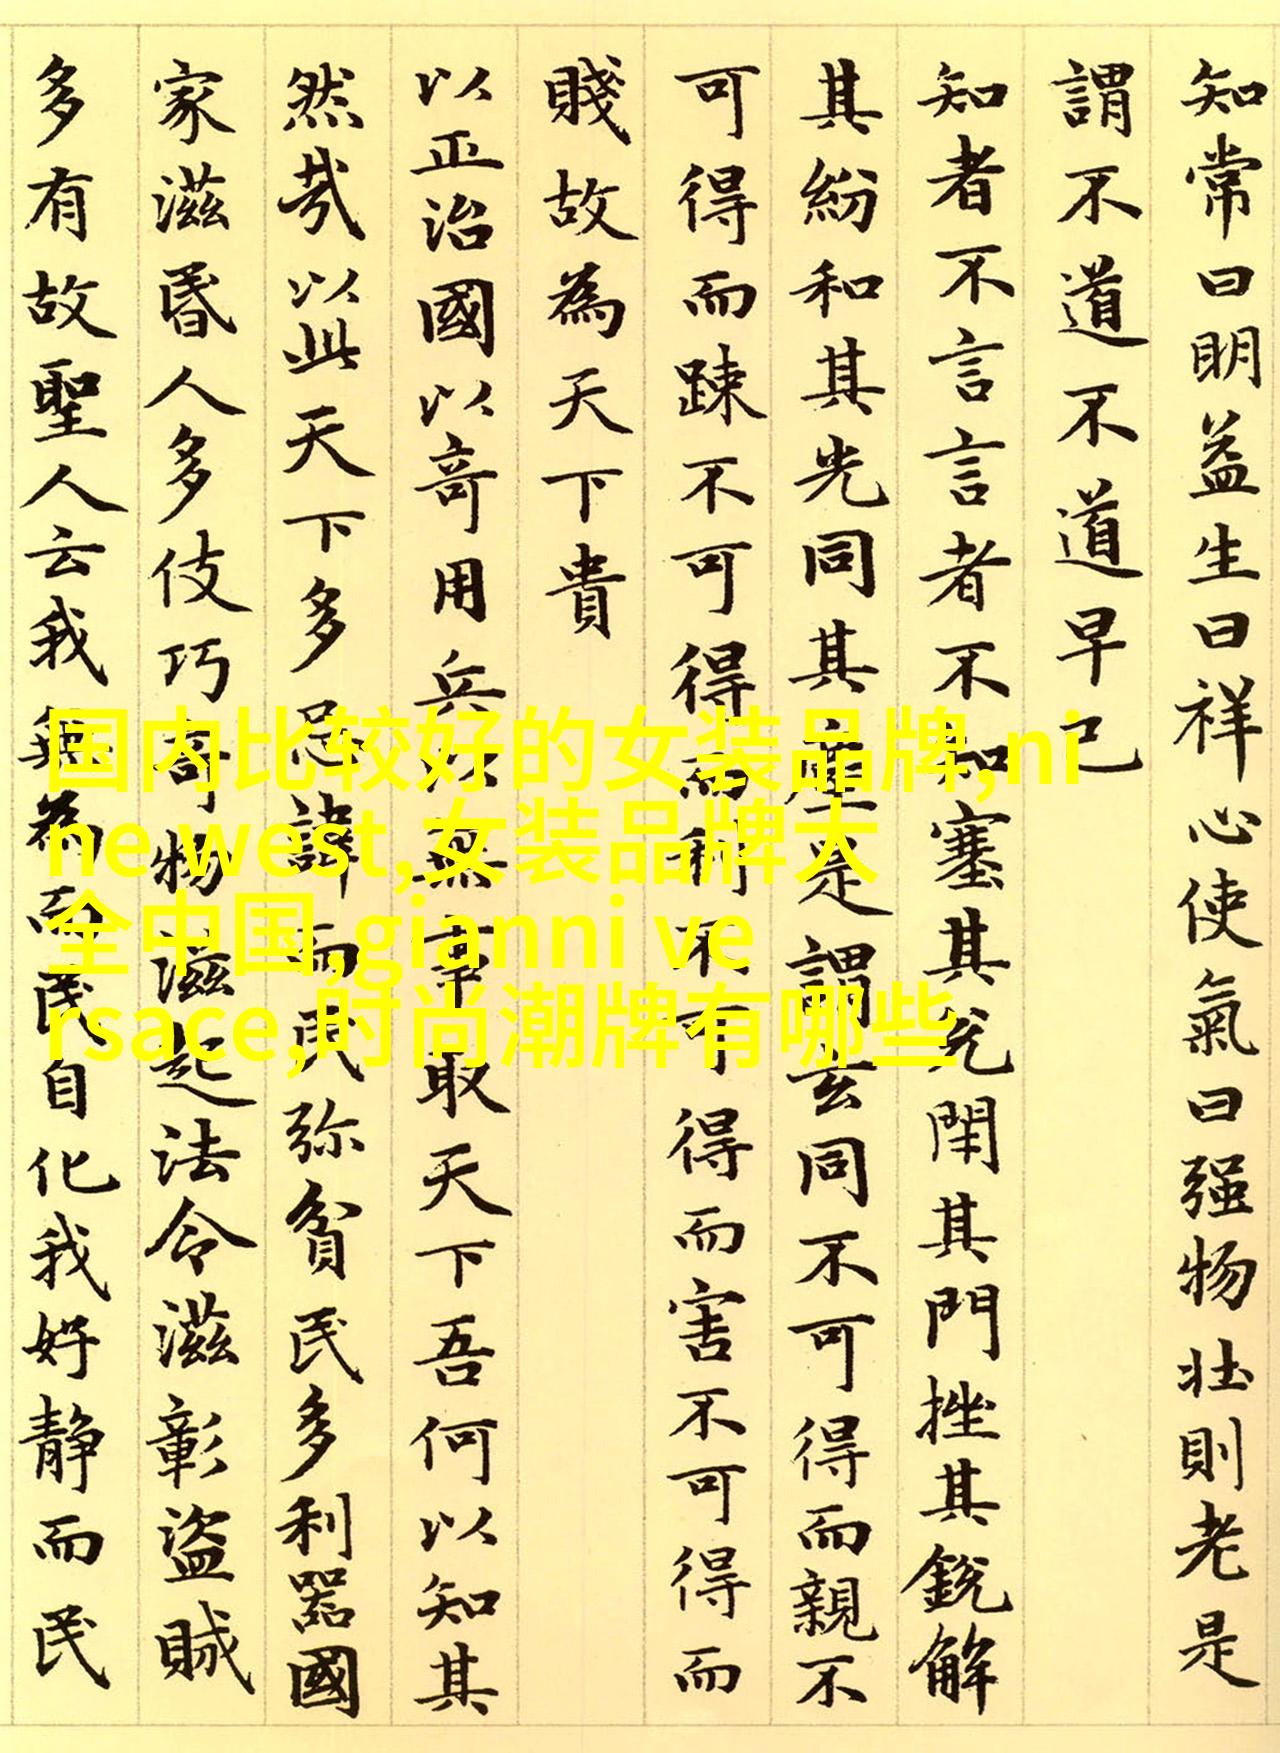 知常曰明益生曰祥心使氣曰强物壮則老是
謂不道不道早已
知者不言言者不知塞其兊閇其門挫其銳解
其紛和其光同其塵是謂玄同不可得而親不
可得而踈不可得而利不可得而害不可得而
賤故為天下貴
以正治國以竒用兵以無事取天下吾何以知其
然㢤以此天下多忌諱而民弥貧民多利器國
家滋昬人多伎巧竒物滋起法令滋彰盜賊
多有故聖人云我無為而民自化我好静而民
国内比较好的女装品牌,ni
ne west,女装品牌大
全中国,gianni ve
rsace,时尚潮牌有哪些